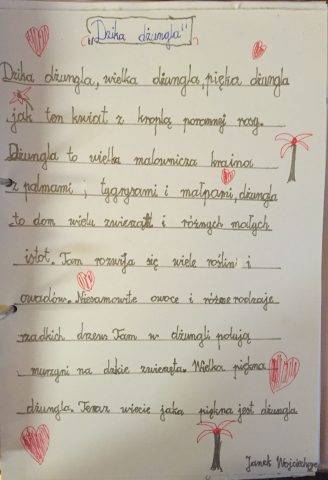 "Dzika dżungla"
Dzika dżungla, wielka dżungla, piękna dżungla
jak ten kwiat z kroplą porannej rosy.
Dżungla to wielka malownicza kraina
z palmami, tygrysami i małpami, dżungla
to dom wielu zwierząt i różnych małych
istot. Tam rozwija się wiele roślin i
owadów. Niesamowite owoce i różne rodzaje
rzadkich drzew. Tam w dżungli polują
murzyni na dzikie zwierzęta. Wielka piękna
dżungla. Teraz wiecie jaka piękna jest dżungla
Janek